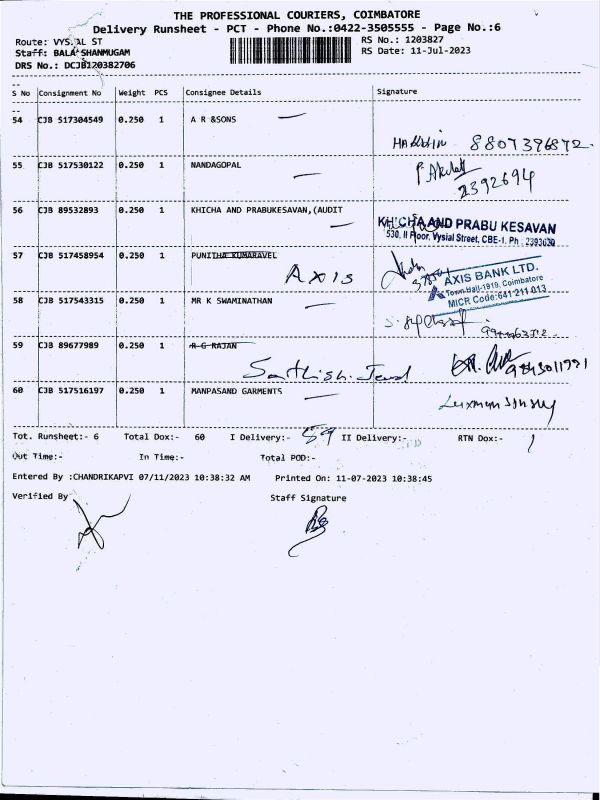 THE PROFESSIONAL COURIERS, COIMBATORE
Delivery Runsheet - PCT - Phone No.:0422-3505555 - Page No.:6
Route: VYSIAL ST
RS No.: 1203827
Staff: BALA SHANMUGAM
RS Date: 11-Jul-2023
DRS No.: DCJB120382706
S No Consignment No Weight PCS Consignee Details Signature
54 CJB 517304549 0.250 1 A R &SONS
8807396872
55 CJB 517530122 0.250 1 NANDAGOPAL
2392694
56 CJB 89532893 0.250 1 KHICHA AND PRABUKESAVAN,(AUDIT
KHICHA AND PRABU KESAVAN
530, II Floor, Vysial Street, CBE-1. Ph : 2393630
57 CJB 517458954 0.250 1 PUNITHA KUMARAVEL
Axis
AXIS BANK LTD.
Town Hall-1919, Coimbatore
MICR Code:641 211 013
58 CJB 517543315 0.250 1 MR K SWAMINATHAN
59 CJB 89677989 0.250 1 R G RAJAN
Sathish. Jewel
9843011991
60 CJB 517516197 0.250 1 MANPASAND GARMENTS
Tot. Runsheet:- 6 Total Dox:- 60 I Delivery:- 59 II Delivery:- RTN Dox:- 1
Out Time:- In Time:- Total POD:-
Entered By :CHANDRIKAPVI 07/11/2023 10:38:32 AM Printed On: 11-07-2023 10:38:45
Verified By Staff Signature